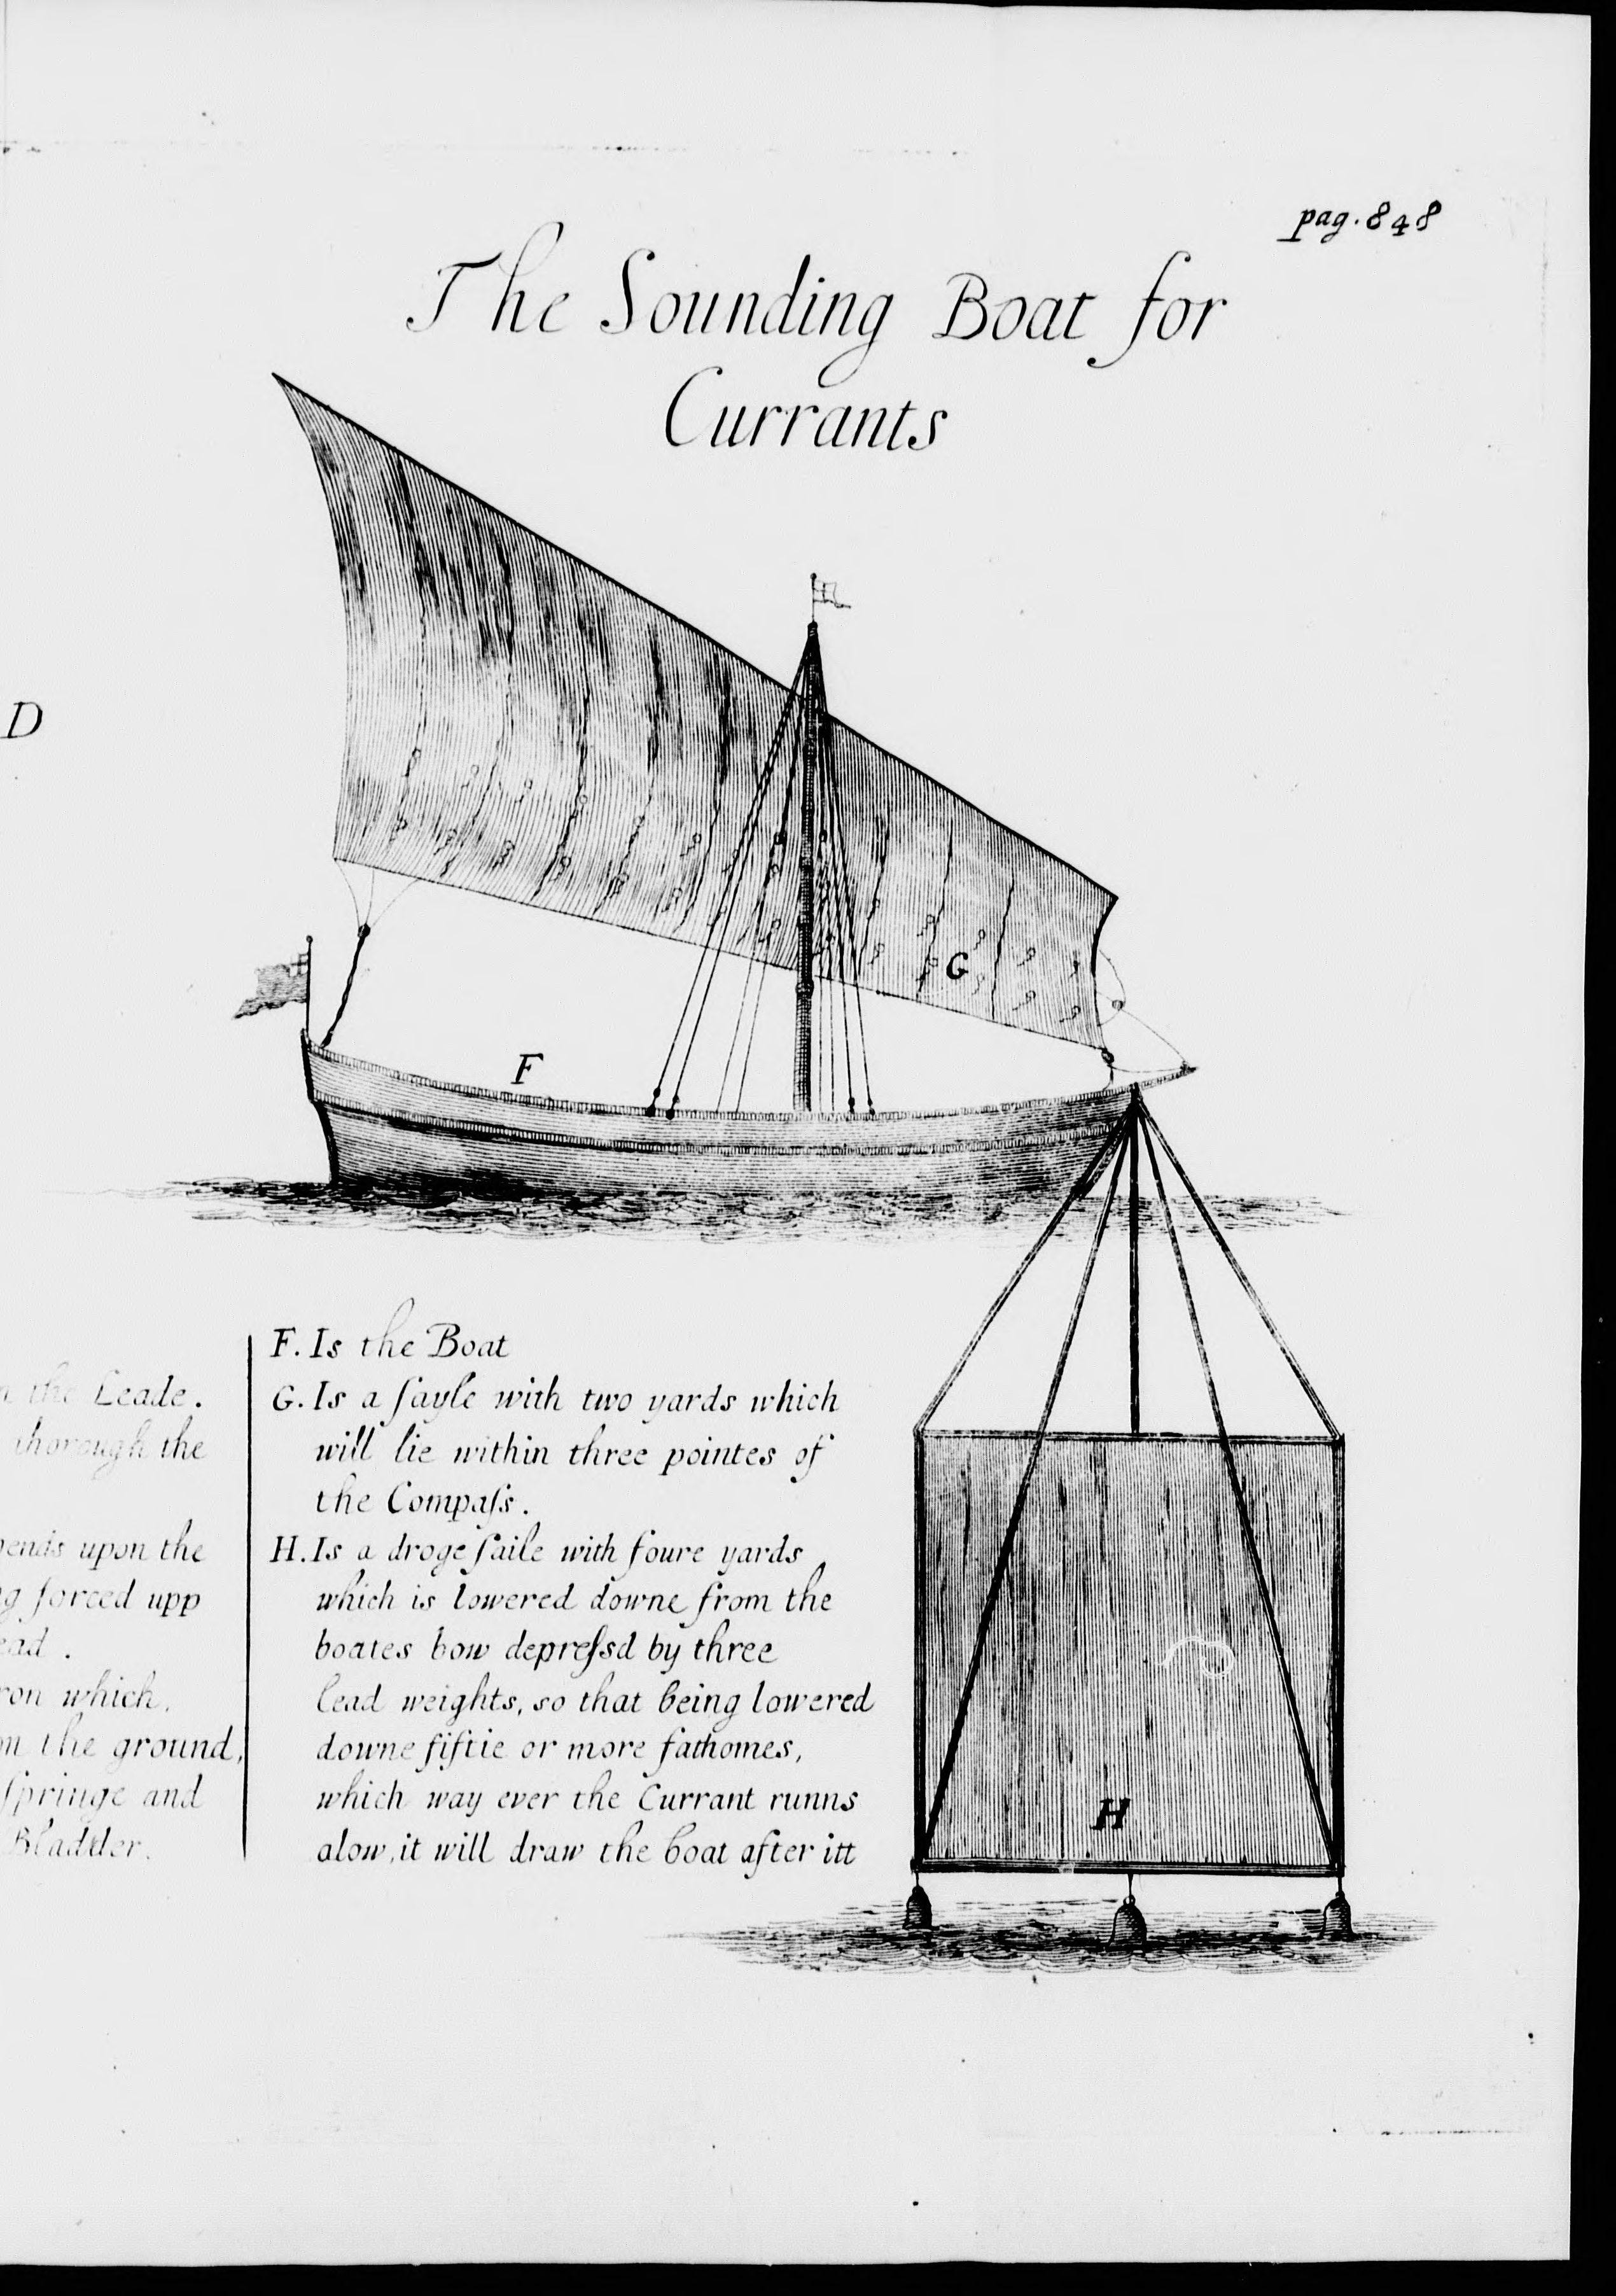 pag. 848
The Sounding Boat for
Currants
D
G
F
the Leade.
thorough the
upon the
forced upp
which,
the ground,
ſpringe and
Bladder.
F. Is the Boat
G. Is a ſayle with two yards which
will lie within three pointes of
the Compaſs.
H. Is a droge ſaile with foure yards
which is lowered downe from the
boates bow depreſsd by three
lead weights, so that being lowered
downe fiftie or more fathomes,
which way ever the Currant runns
alow, it will draw the boat after itt
H